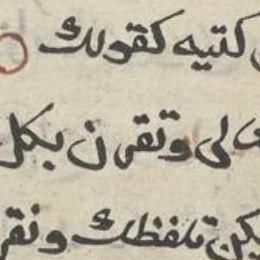 كتبه كقولك
لى وتقرن بكل
تلفظك ونقر